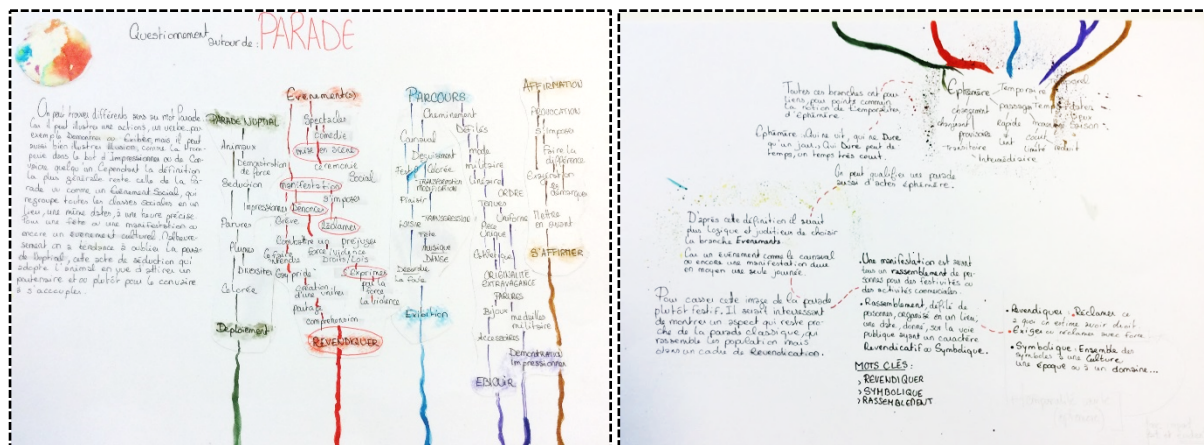 Questionement autour de : PARADE
On peut trouver différents sens au mot Parade
Car il peut illustré une actions, un verbe, par
exemple Demontrer ou Exhiber, mais il peut
aussi bien illustré illusion, comme la
dans le but d'Impressionner ou de
quelqu'un. Cependant la définition
la plus générale reste celle de la Pa-
rade vu comme un Evénement Social, qui
regroupe toutes les classes sociales en un
lieu, une même dates, à une heure précise.
Pour une fête ou une manifestation ou
encore un evenement culturel.
on a tendance à oublier la para-
de Nuptial, cete acte de séduction qui
adopte l'animal en vue d'attirer un
partenaire et ou plutôt pour le convaincre
à s'accoupler.
PARADE NUPTIAL
Animaux
Démonstration
de force
Séduction
Impressionner
Parures
Plumes
Diversités
Colorée
Déploiement
Evenement(s)
Spectacles
comédie
mise en scène
cérémonie
Social
manifestation
s'imposer
Dénoncer
Grève
Réclamer
Combattre un préjuger
force/violence
Droits/Lois
S'exprimer
Gay pride
par la
force
la violence
création
d'une univers
partage
compréhension
REVENDIQUER
PARCOURS
Cheminement
Carnaval
Déguisement
Festif
Colorée
TRANSFORMATION
MODIFICATION
Plaisir
TRANSGRESSION
Loisir
Fête
musique
DANSE
la foule
Exibition
Défilés
mode
militaire
Lineaire
ORDRE
Tenues
Uniforme
Pièce
Unique
ORIGINALITÉ
EXTRAVAGANCE
PARURES
Bijoux
medailles
militaire
Accessoires
DEMONSTRATION
Impressionner
EBLOUIR
AFFIRMATION
PROVOCATION
S'imposer
Faire la
différence
se
démarquer
Mettre
en avant
S'AFFIRMER
Toutes ces branches ont plusieurs
liens, leur points commun
la notion de Temporalités
d'éphémère.
Ephémère : Qui ne vit, qui ne Dure
qu'un jour. Qui Dure peut de
temps, un temps très court.
Ephémère
changement
changeant
provisoires
Transitoire
Intermédiaire
Temporaire
passager
Rapide
court
Temporel
Temps
Dates
Jour
Saison
Limité
On peut qualifier une parade
aussi d'actes éphémère.
D'après cete définition il serait
plus logique et judicieux de choisir
la branche Evenements
Car un evenement comme le carnaval
ou encore une manifestation dure
en moyen une seule journée.
Pour casser cete image de la parade
plutôt festif. Il serait interessant
de montrer un aspect qui reste pro-
che de la parade classique, qui
rassemble les population mais
dans un cadre de Revendication.
• Une manifestation est avant
tous un rassemblement de per-
sonnes pour des festivités ou
des activités commerciales.
• Rassemblement, défilé de
personnes, organisé en un lieu,
une date, donné, sur la voie
publique ayant un caractère
Revendicatif ou Symbolique.
MOTS CLÉS :
> REVENDIQUER
> SYMBOLIQUE
> RASSEMBLEMENT
• Revendiquer : Réclamer ce
à quoi on estime avoir droit
Exiger ou réclamer avec force.
• Symbolique : Ensemble des
symboles à une Culture
une époque ou à un domaine...